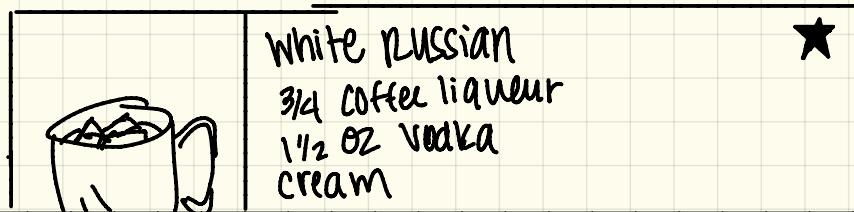 White Russian
3/4 coffee liqueur
1 1/2 oz vodka
cream